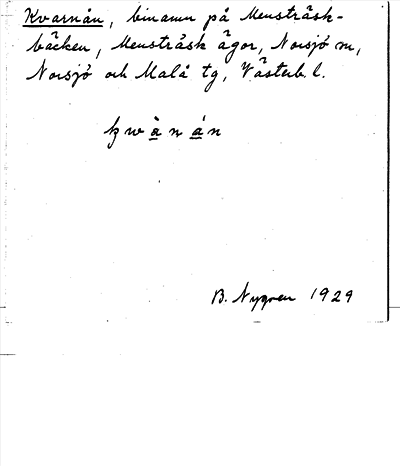 Kvarnån, binamn på Mensträsk-
bäcken, Mensträsk ägor, Norsjö sn,
Norsjö och Malå tg, Västerb. l.
kwà̱ṇá̱n
B. Nygren 1929